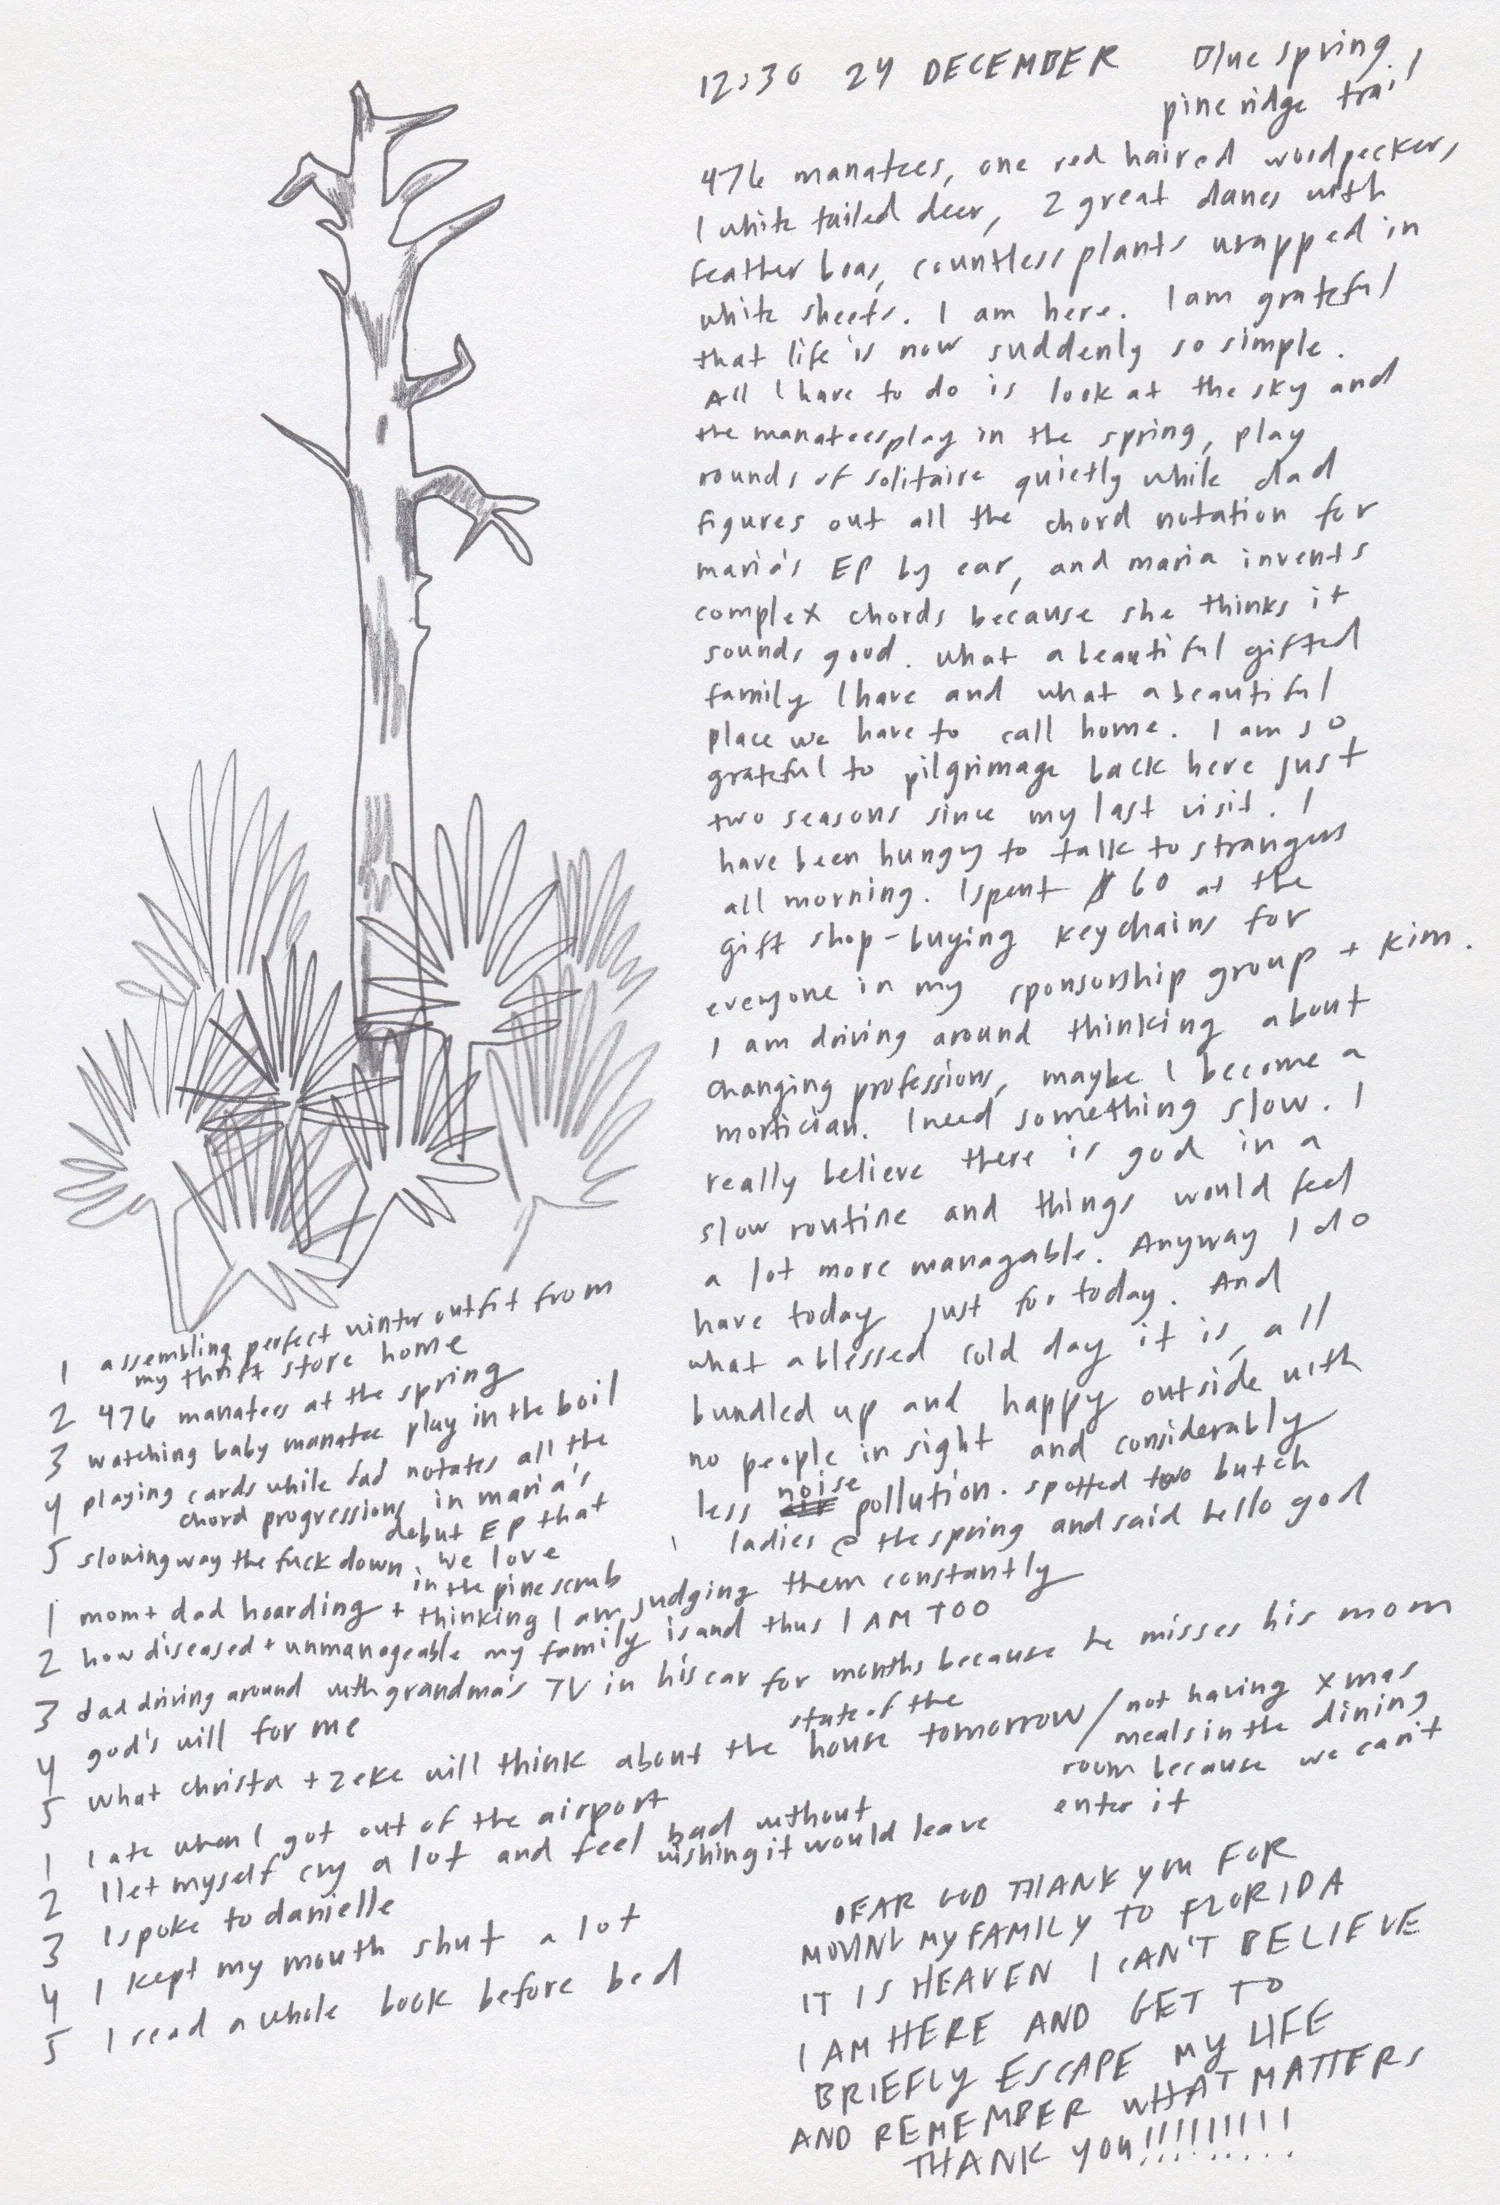 12:30 24 DECEMBER Blue spring
pine ridge trail
476 manatees, one red haired woodpecker,
1 white tailed deer, 2 great danes with
feather boas, countless plants wrapped in
white sheets. I am here. I am grateful
that life is now suddenly so simple.
All I have to do is look at the sky and
the manatees play in the spring, play
rounds of solitaire quietly while dad
figures out all the chord notation for
maria's EP by ear, and maria invents
complex chords because she thinks it
sounds good. what a beautiful gifted
family I have and what a beautiful
place we have to call home. I am so
grateful to pilgrimage back here just
two seasons since my last visit. I
have been hungry to talk to strangers
all morning. I spent $60 at the
gift shop - buying keychains for
everyone in my sponsorship group + kim.
I am driving around thinking about
changing professions, maybe I become a
mortician. I need something slow. I
really believe there is god in a
slow routine and things would feel
a lot more managable. Anyway I do
have today just for today. And
what a blessed cold day it is, all
bundled up and happy outside with
no people in sight and considerably
less noise pollution. spotted two butch
ladies @ the spring and said hello god
1 assembling perfect winter outfit from
my thrift store home
2 476 manatees at the spring
3 watching baby manatee play in the boil
4 playing cards while dad notates all the
chord progressions in maria's
debut EP that
we love
5 slowing way the fuck down
in the pine scrub
1 mom + dad hoarding + thinking I am judging them constantly
2 how diseased + unmanageable my family is and thus I AM TOO
3 dad driving around with grandma's TV in his car for months because he misses his mom
4 god's will for me
5 what christa + zeke will think about the state of the house tomorrow / not having xmas
meals in the dining
room because we can't
enter it
1 I ate when I got out of the airport
2 I let myself cry a lot and feel bad without
wishing it would leave
3 I spoke to danielle
4 I kept my mouth shut a lot
5 I read a whole book before bed
DEAR GOD THANK YOU FOR
MOVING MY FAMILY TO FLORIDA
IT IS HEAVEN I CAN'T BELIEVE
I AM HERE AND GET TO
BRIEFLY ESCAPE MY LIFE
AND REMEMBER WHAT MATTERS
THANK YOU!!!!!!!!!